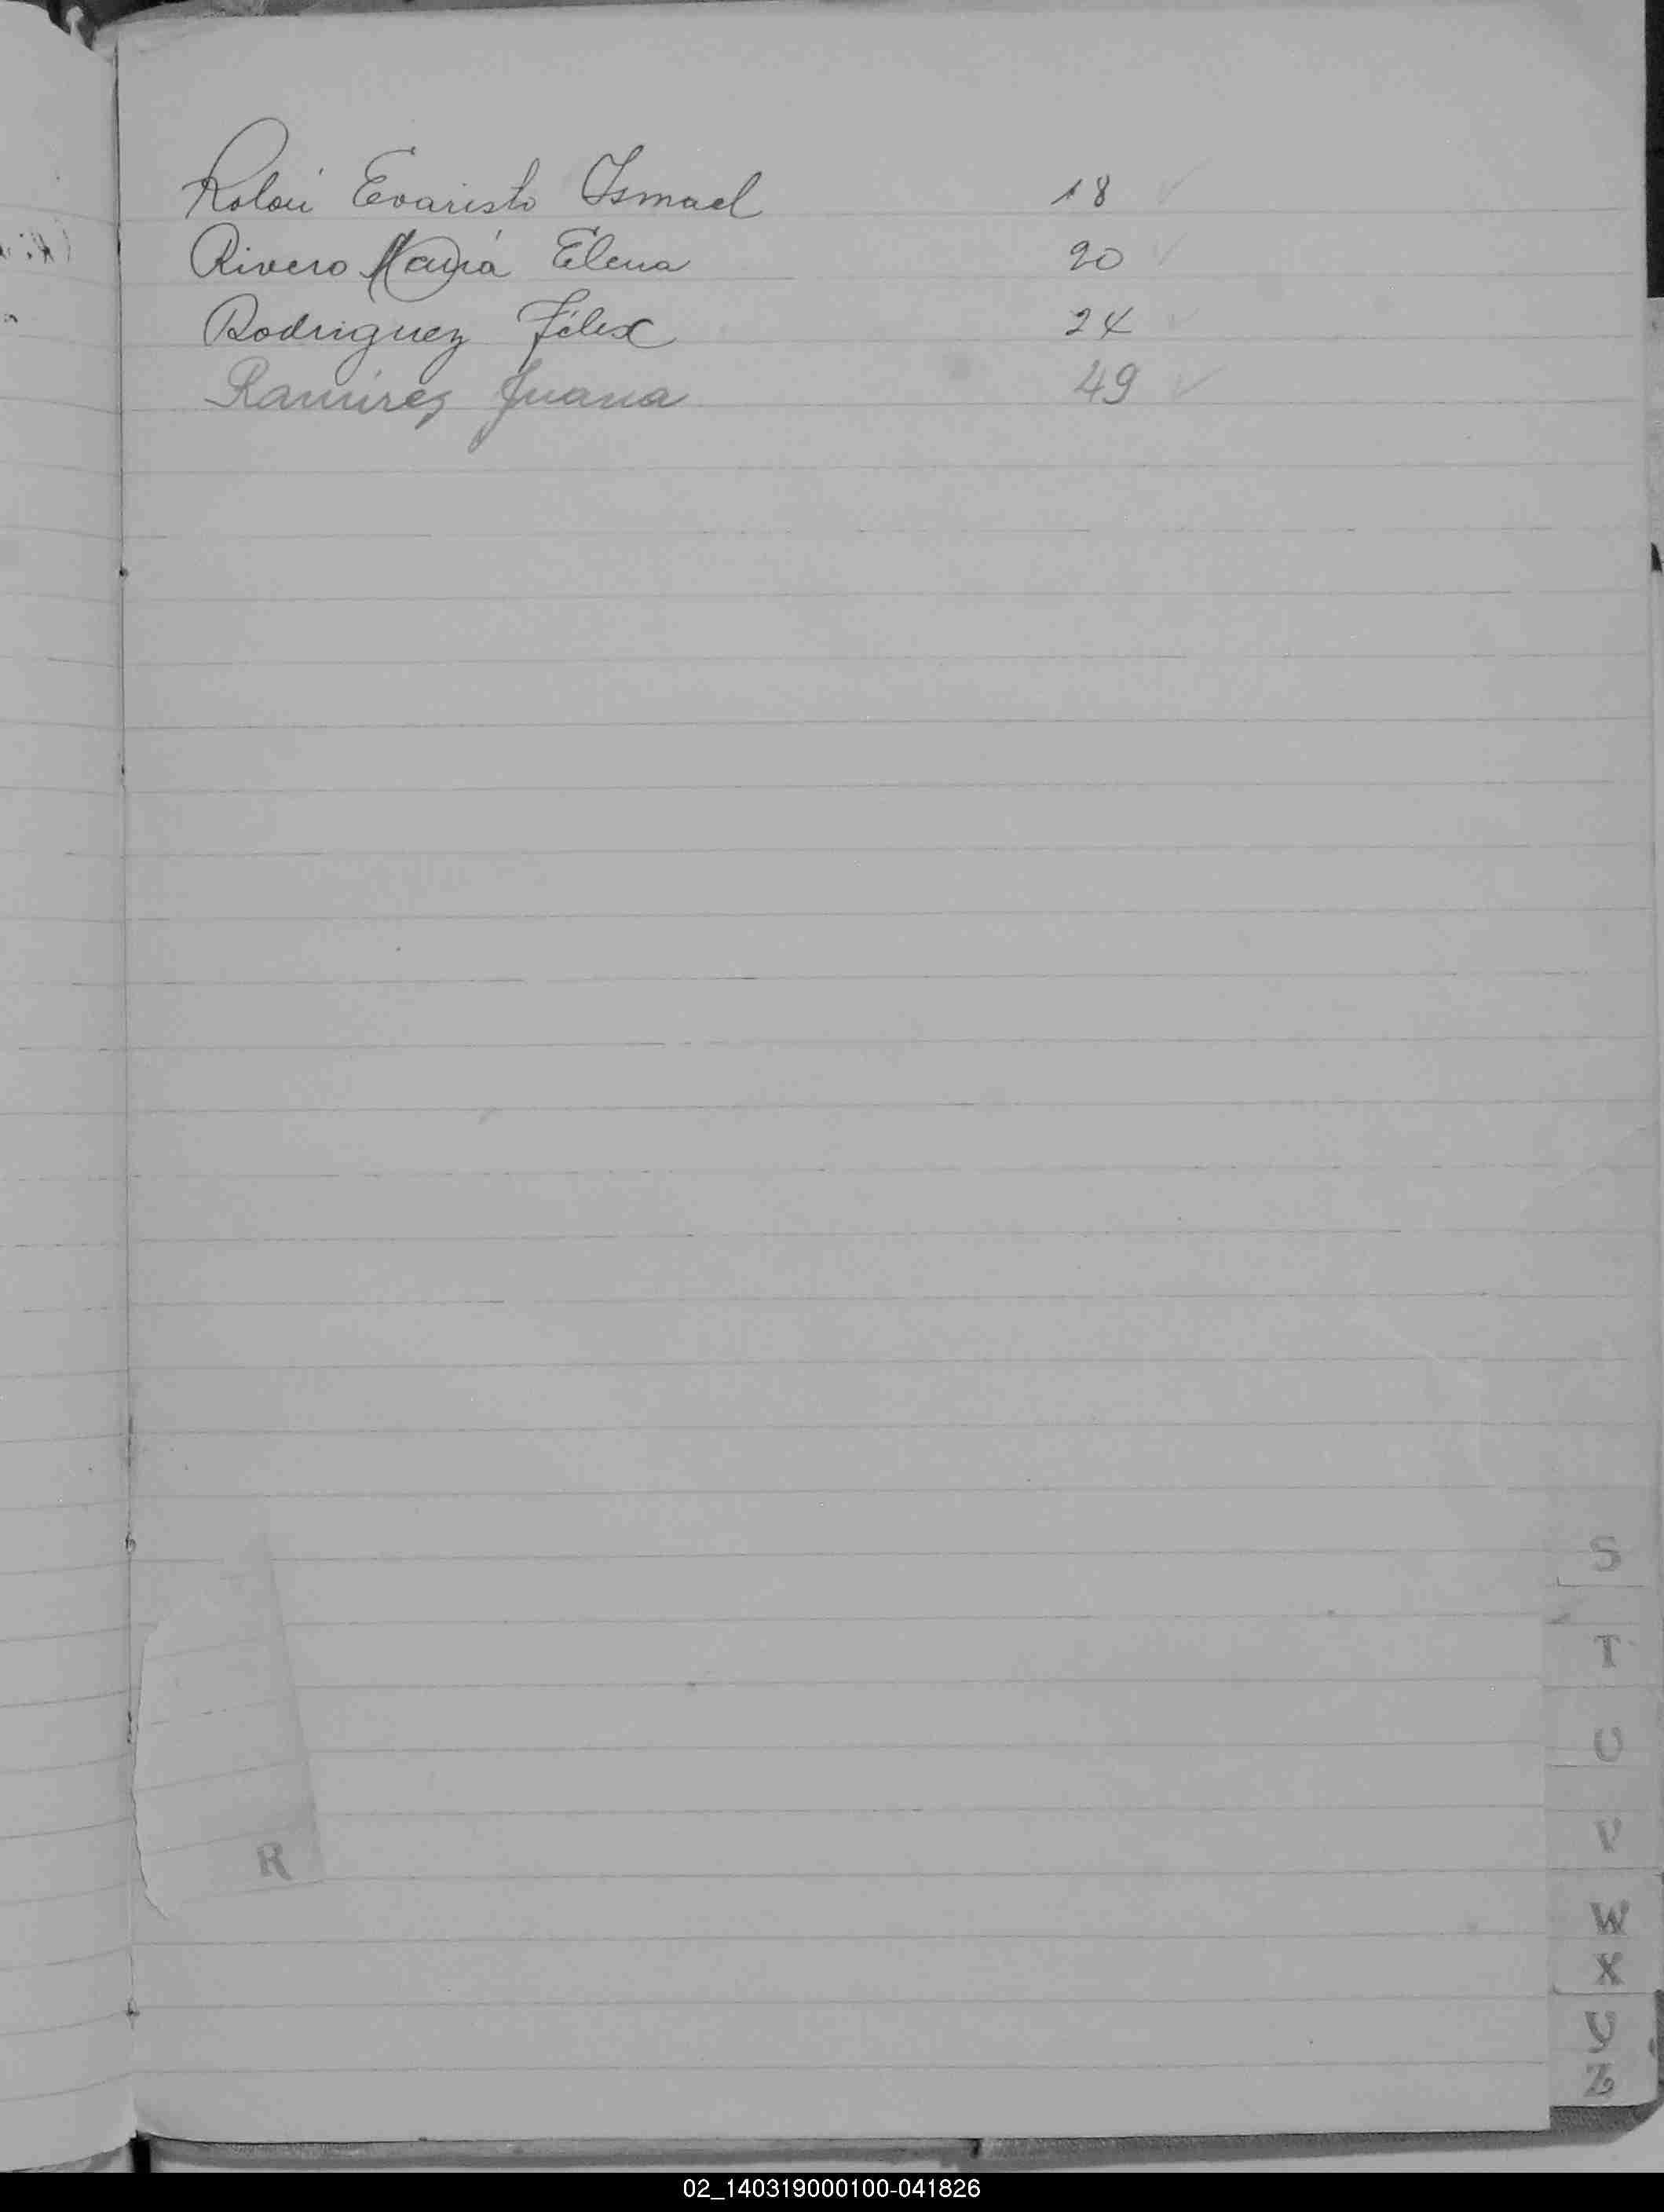 Rolón Evaristo Ismael 18 ✓
Rivero María Elena 20 ✓
Rodriguez Félix 24 ✓
Ramírez Juana 49 ✓
S
T
U
V
R
W
X
Y
Z
02_140319000100-041826